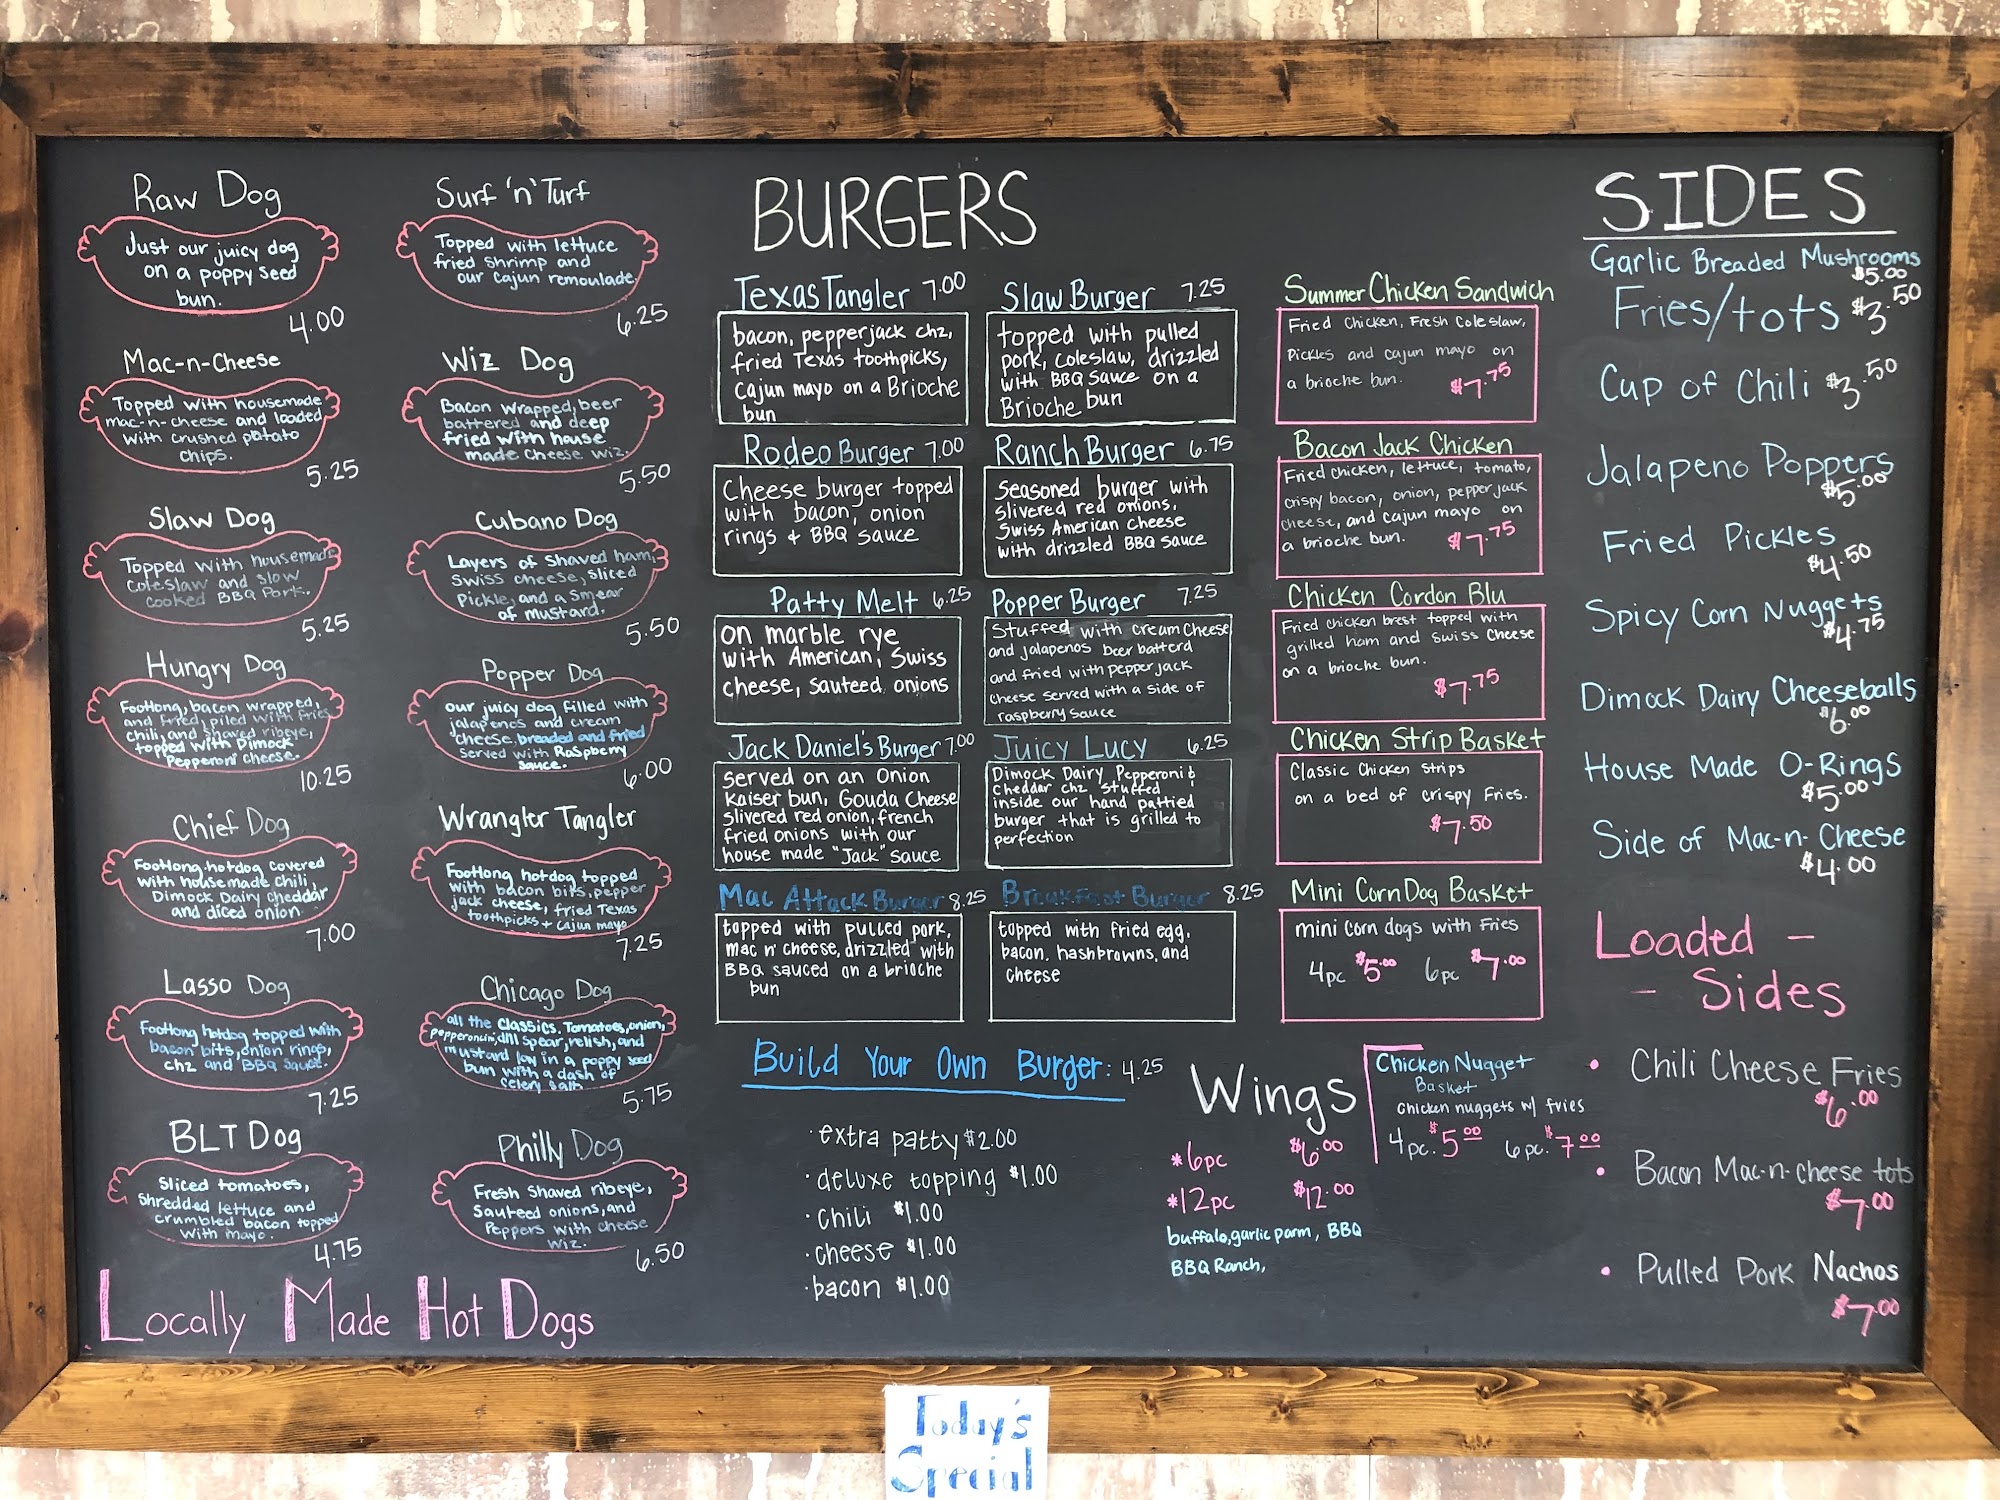 Raw Dog
Just our juicy dog
on a poppy seed
bun.
4.00
Mac-n-Cheese
Topped with housemade
mac-n-cheese and loaded
with crushed potato
chips.
5.25
Slaw Dog
Topped with housemade
coleslaw and slow
cooked BBQ Pork.
5.25
Hungry Dog
Footlong, bacon wrapped,
and fried, piled with fries
chili, and shaved ribeye,
topped with Dimock
Pepperoni cheese.
10.25
Chief Dog
Footlong hotdog covered
with housemade chili,
Dimock Dairy cheddar
and diced onion
7.00
Lasso Dog
Footlong hotdog topped with
bacon bits, onion rings,
chz and BBQ sauce.
7.25
BLT Dog
Sliced tomatoes,
shredded lettuce and
crumbled bacon topped
with mayo.
4.75
Surf 'n' Turf
Topped with lettuce
fried shrimp and
our cajun remoulade.
6.25
Wiz Dog
Bacon wrapped, beer
battered and deep
fried with house
made cheese wiz.
5.50
Cubano Dog
Layers of shaved ham,
Swiss cheese, sliced
Pickle, and a smear
of mustard.
5.50
Popper Dog
our juicy dog filled with
jalapenos and cream
cheese, breaded and fried
served with Raspberry
sauce.
6.00
Wrangler Tangler
Footlong hotdog topped
with bacon bits, pepper
jack cheese, fried Texas
toothpicks + cajun mayo
7.25
Chicago Dog
all the classics. Tomatoes, onion,
pepperoncini, dill spear, relish, and
mustard lay in a poppy seed
bun with a dash of
celery salt
5.75
Philly Dog
Fresh shaved ribeye,
Sauteed onions, and
Peppers with cheese
wiz.
6.50
Locally Made Hot Dogs
BURGERS
Texas Tangler 7.00
bacon, pepperjack chz,
fried Texas toothpicks,
Cajun mayo on a Brioche
bun
Rodeo Burger 7.00
Cheese burger topped
with bacon, onion
rings + BBQ sauce
Patty Melt 6.25
on marble rye
with American, Swiss
cheese, sauteed onions
Jack Daniel's Burger 7.00
served on an Onion
Kaiser bun, Gouda Cheese
slivered red onion, french
fried onions with our
house made "Jack" sauce
Mac Attack Burger 8.25
topped with pulled pork,
mac n' cheese, drizzled with
BBQ sauced on a brioche
bun
Slaw Burger 7.25
topped with pulled
pork, coleslaw, drizzled
with BBQ sauce on a
Brioche bun
Ranch Burger 6.75
Seasoned burger with
slivered red onions,
Swiss American cheese
with drizzled BBQ sauce
Popper Burger 7.25
Stuffed with cream cheese
and jalapenos beer batterd
and fried with pepperjack
cheese served with a side of
raspberry sauce
Juicy Lucy 6.25
Dimock Dairy Pepperoni &
cheddar chz stuffed
inside our hand pattied
burger that is grilled to
perfection
Breakfast Burger 8.25
topped with fried egg,
bacon, hashbrowns, and
cheese
Build Your Own Burger: 4.25
·extra patty $2.00
·deluxe topping $1.00
·chili $1.00
·cheese $1.00
·bacon $1.00
Summer Chicken Sandwich
Fried Chicken, Fresh Coleslaw,
Pickles and cajun mayo on
a brioche bun. $7.75
Bacon Jack Chicken
Fried chicken, lettuce, tomato,
crispy bacon, onion, pepperjack
cheese, and cajun mayo on
a brioche bun. $7.75
Chicken Cordon Blu
Fried chicken brest topped with
grilled ham and swiss cheese
on a brioche bun.
$7.75
Chicken Strip Basket
Classic Chicken Strips
on a bed of crispy Fries.
$7.50
Mini Corn Dog Basket
mini corn dogs with Fries
4pc $5.00 6pc $7.00
Wings
*6pc $6.00
*12pc $12.00
buffalo, garlic parm, BBQ
BBQ Ranch,
Chicken Nugget
Basket
chicken nuggets w/ fries
4pc. $5.00 6pc. $7.00
SIDES
Garlic Breaded Mushrooms
$5.00
Fries/tots $3.50
Cup of Chili $3.50
Jalapeno Poppers
$5.00
Fried Pickles
$4.50
Spicy Corn Nuggets
$4.75
Dimock Dairy Cheeseballs
$6.00
House Made O-Rings
$5.00
Side of Mac-n-Cheese
$4.00
Loaded -
- Sides
• Chili Cheese Fries
$6.00
• Bacon Mac-n-cheese tots
$7.00
• Pulled Pork Nachos
$7.00
Today's
Special